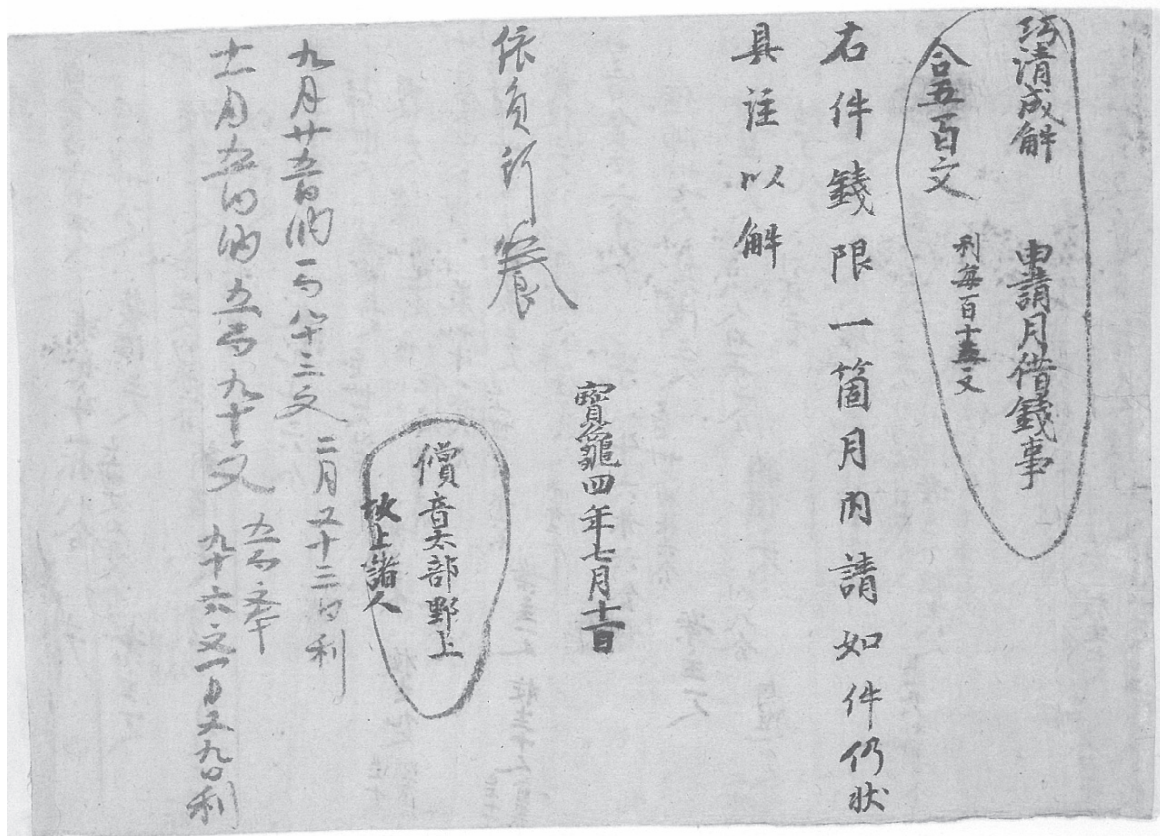 巧清成解　申請月借錢事
合五百文　利每百十五文
右件錢限一箇月内請如件仍状
具注以解
寶龜四年七月十一日
依員行
償音太部野上
上諸人
九月廿五日納一百八十三文　二月又十二日利
十一月五日納五百九十文　五百文本
九十六文一月又九日利